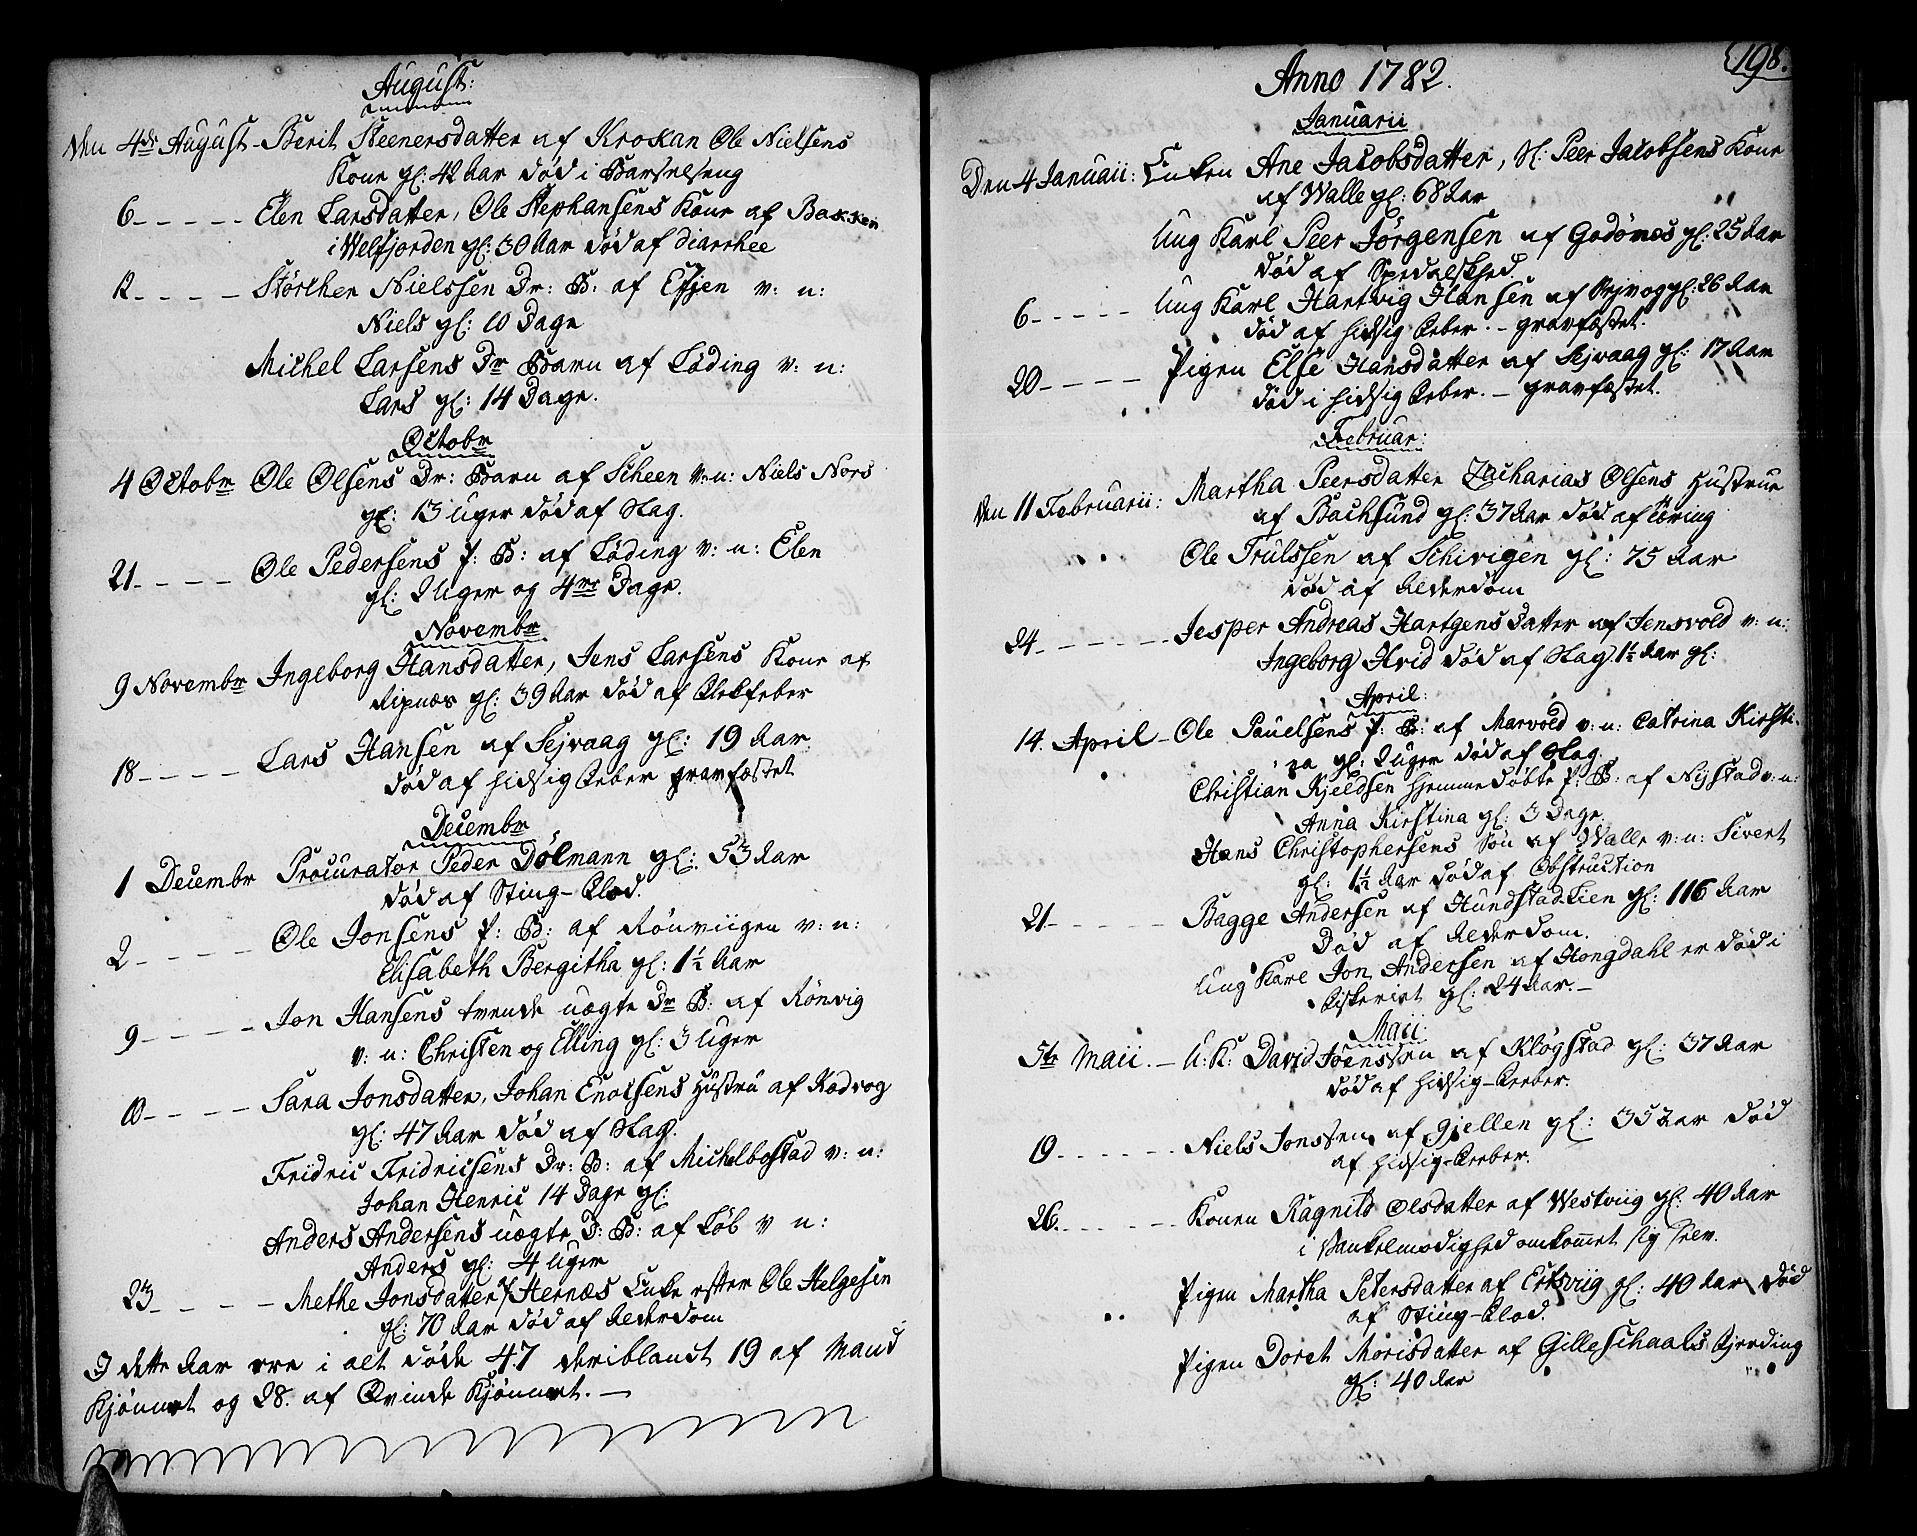 August:
Den 4de August - Berit Steenersdatter af Krokan Ole Nielsens
Kone gl: 42 Aar død i Barselseng
6 - - - - - Elen Larsdatter, Ole Stephansens Kone af Bakken
i Welfjorden gl: 30 Aar død af Diarrhee
12 - - - - Størcher Nielssen Dr: B: af Efjen v: n:
Niels gl: 10 Dage
Michel Larsens Dr Barn af Løding v: n:
Lars gl: 14 Dage.
Octobr
4 Octobr Ole Olsens Dr: Barn af Scheen v: n: Niels Nors
gl: 13 Uger død af Slag.
21 - - - - Ole Pedersens P: B: af Løding v: n: Elen
gl: 2 Uger og 4re Dage.
Novembr
9 Novembr Ingeborg Hansdatter, Jens Larsens Kone af
Ripnæs gl: 39 Aar død af
18 - - - - Lars Hansen af Sejvaag gl: 19 Aar
død af hidsig Feber gravfæstet
Decembr
1 Decembr Procurator Peder Dølmann gl: 53 Aar
død af Sting-Flod.
2 - - - - - Ole Jonsens P: B: af Rönviigen v: n:
Elisabeth Bergitha gl: 1½ Aar
9 - - - - Jon Hansens tvende uægte Dr B: af Rönvig
v: n: Christen og Elling gl: 3 Uger
10 - - - - Sara Jonsdatter, Johan Enochsens Hustru af Kodvog
gl: 47 Aar død af Slag.
Fridric Fridricsens Dr: B: af Michelbostad v: n:
Johan Henric 14 Dage gl:
Anders Andersens uægte D: B: af Løb v n:
Anders gl: 4 Uger
23 - - - - - Methe Jonsdatter af Hernæs Enke efter Ole Helgesen
gl: 70 Aar død af Alderdom
I dette Aar ere i alt døde 47 deriblandt 19 af Mand
Kjønnet og 28. af Qvinde Kjønnet. -
198.
Anno 1782.
Januarii
Den 4 Januaii: Enken Ane Jacobsdatter, Sl: Peer Jacobsens Kone
af Walle gl: 68 Aar
Ung Karl Peer Jörgensen af Godönes gl: 25 Aar
død af Spedalskhed
6 - - - - - Ung Karl Hartvig Hansen af Sejvog gl: 26 Aar
død af hidsig Feber. - gravfæstet.
20 - - - - - Pigen Else Hansdatter af Sejvaag gl: 17 Aar
død i hidsig Feber. - gravfæstet.
Februar:
Den 11 Februarii: Martha Peersdatter Zacharias Olsens Hustrue
af Bachsund gl: 37 Aar død af Tæring
Ole Trulssen af Schivigen gl: 75 Aar
død af Alderdom
24 - - - - - - Jesper Andreas Hartgens Datter af Jensvold v: n:
Ingeborg Hvid død af Slag 1½ Aar gl:
April:
14. April - Ole Pauelsens P: B: af Marvold v: n: Catrina Kirsti-
na gl: 2 Uger død af Slag
Christian Kjeldsen hjemmedøbte P: B: af Nystad v: n:
Anna Kirstina gl: 3 Dage.
Hans Christophersens Søn af Walle v: n: Sivert
gl: 1½ Aar død af Obstruction
21 - - - - - Bagge Andersen af Hundstadlien gl: 116 Aar
Død af Alderdom.
Ung Karl Jon Andersen af Hongdahl er død i
Fiskeriet gl: 24 Aar. -
Maii.
5te Maii. - U: K: David Joenssen af Kløgstad gl: 37 Aar
død af hidsig-Feeber.
19 - - - - - - Niels Jonssen af Gjellen gl: 35 Aar Død
af hidsig-Feeber.
26. - - - - - - Konen Ragnild Olsdatter af Westviig gl: 40 Aar
i Vankelmodighed omkommet sig selv.
Pigen Martha Petersdatter af Erksviig gl: 40 Aar død
af Sting-Flod.
Pigen Doret Morisdatter af Gilleschaals Fjerding
gl: 40 Aar